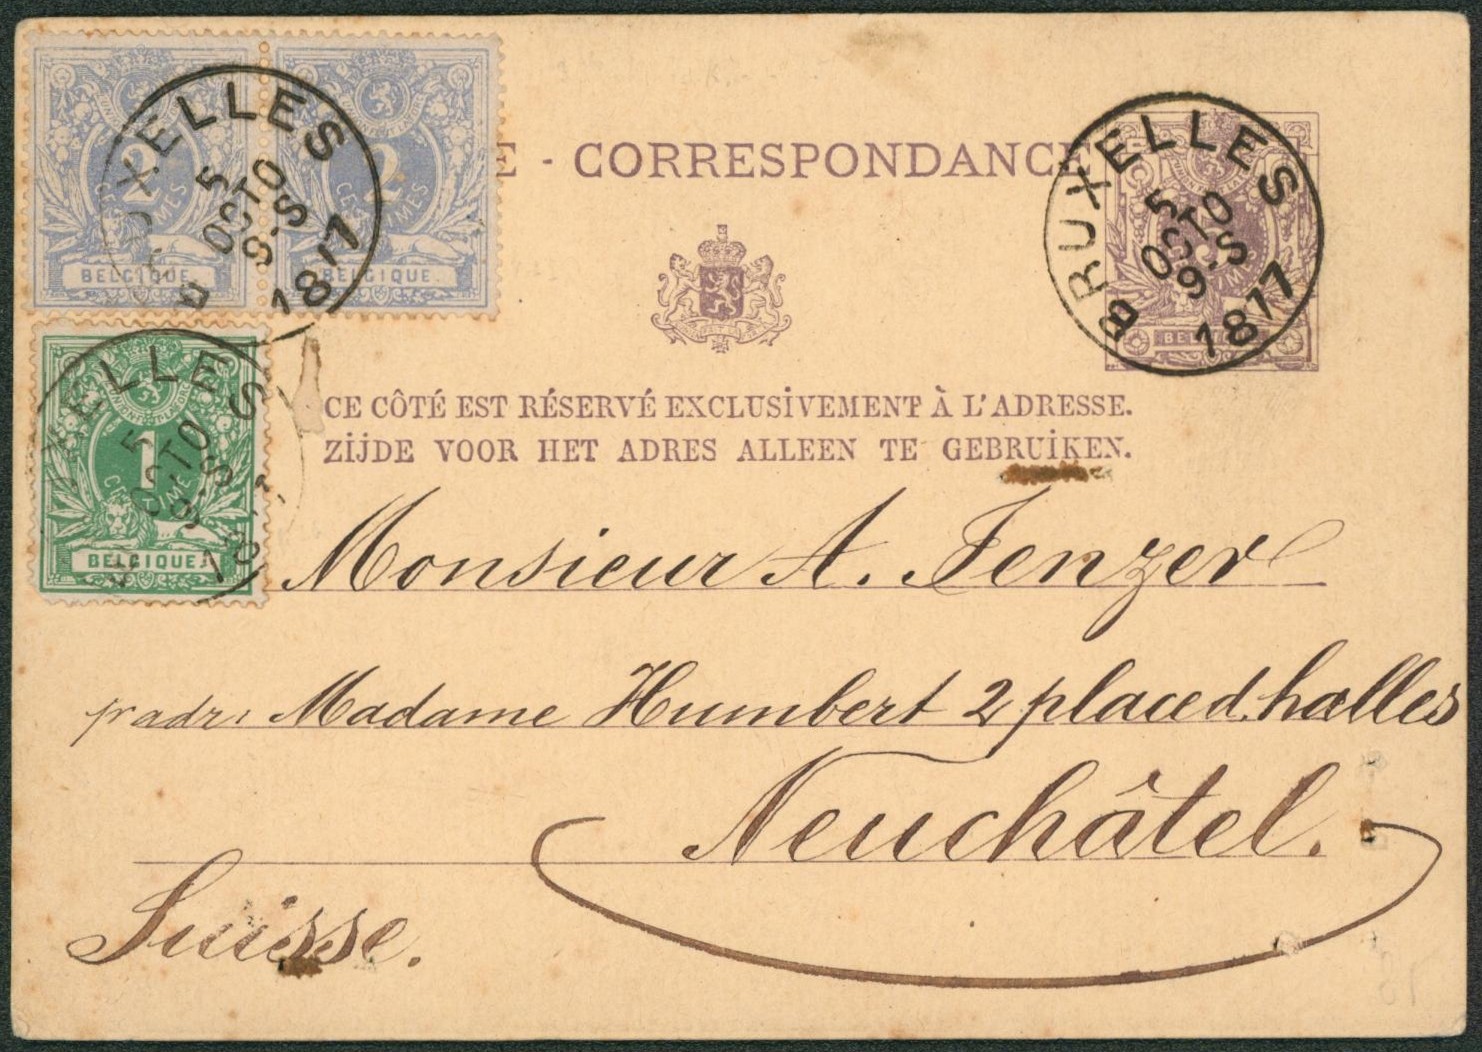 2 CENTIMES
BELGIQUE.
2 CENTIMES
BELGIQUE.
XELLES
5
OCTO
9-S
1877
E - CORRESPONDANCE
BRUXELLES
5
OCTO
9-S
1877
1 CENTIME
BELGIQUE.
XELLES
5
OCTO
9-S
CE CÔTÉ EST RÉSERVÉ EXCLUSIVEMENT À L'ADRESSE.
ZIJDE VOOR HET ADRES ALLEEN TE GEBRUIKEN.
Monsieur A. Jenzer
pr adr: Madame Humbert 2 place d. halles
Neuchâtel.
Suisse.